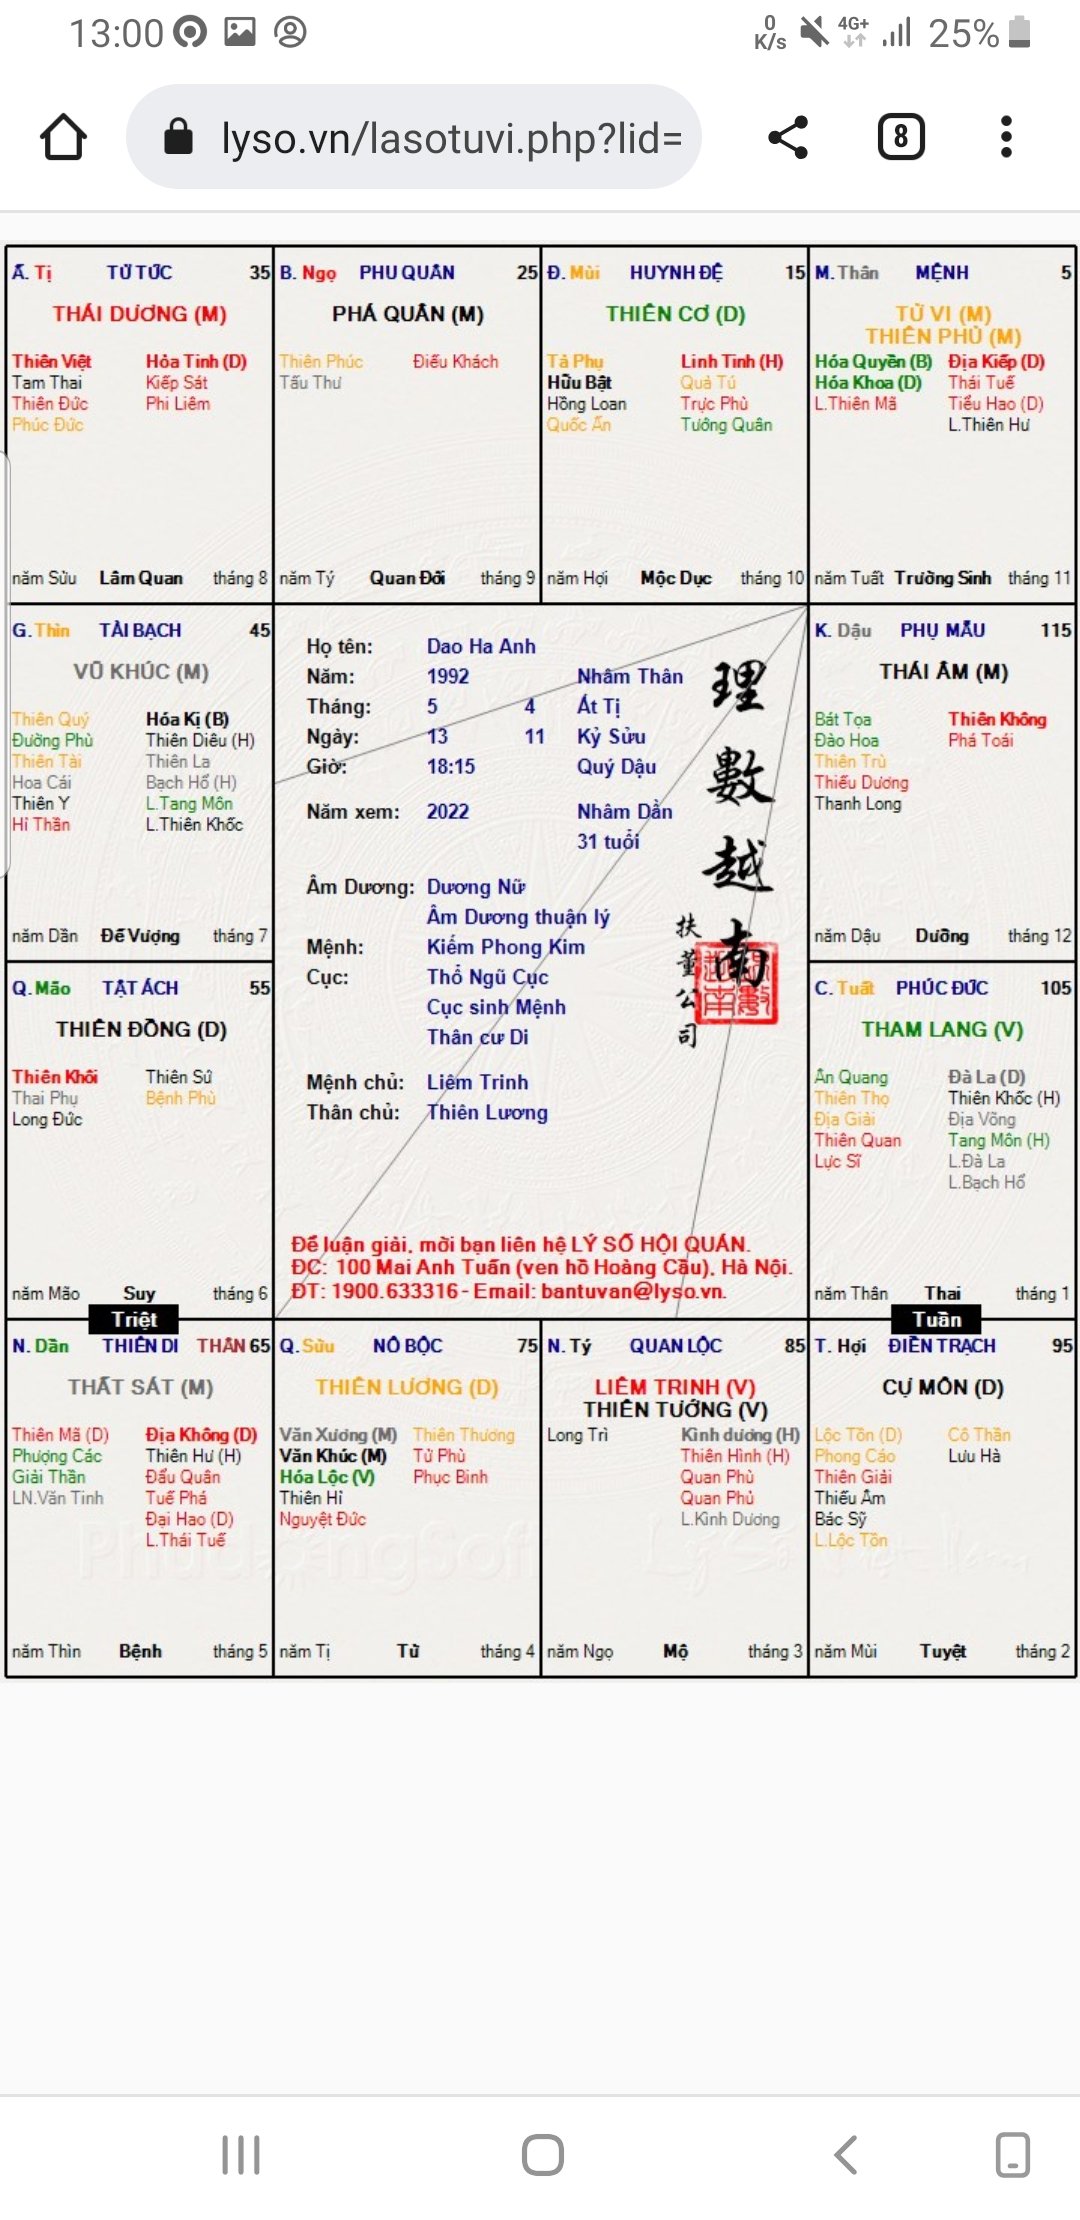 13:00
0 K/s 4G+ 25%
lyso.vn/lasotuvi.php?lid=
8
Ấ. Tị TỬ TỨC 35
THÁI DƯƠNG (M)
Thiên Việt Hỏa Tinh (D)
Tam Thai Kiếp Sát
Thiên Đức Phi Liêm
Phúc Đức
năm Sửu Lâm Quan tháng 8
B. Ngọ PHU QUÂN 25
PHÁ QUÂN (M)
Thiên Phúc Điếu Khách
Tấu Thư
năm Tý Quan Đới tháng 9
Đ. Mùi HUYNH ĐỆ 15
THIÊN CƠ (D)
Tả Phụ Linh Tinh (H)
Hữu Bật Quả Tú
Hồng Loan Trực Phù
Quốc Ấn Tướng Quân
năm Hợi Mộc Dục tháng 10
M. Thân MỆNH 5
TỬ VI (M)
THIÊN PHỦ (M)
Hóa Quyền (B) Địa Kiếp (D)
Hóa Khoa (D) Thái Tuế
L.Thiên Mã Tiểu Hao (D)
L.Thiên Hư
năm Tuất Trường Sinh tháng 11
G. Thìn TÀI BẠCH 45
VŨ KHÚC (M)
Thiên Quý Hóa Kị (B)
Đường Phù Thiên Diêu (H)
Thiên Tài Thiên La
Hoa Cái Bạch Hổ (H)
Thiên Y L.Tang Môn
Hỉ Thần L.Thiên Khốc
năm Dần Đế Vượng tháng 7
Họ tên: Dao Ha Anh
Năm: 1992 Nhâm Thân
Tháng: 5 4 Ất Tị
Ngày: 13 11 Kỷ Sửu
Giờ: 18:15 Quý Dậu
Năm xem: 2022 Nhâm Dần
31 tuổi
Âm Dương: Dương Nữ
Âm Dương thuận lý
Mệnh: Kiếm Phong Kim
Cục: Thổ Ngũ Cục
Cục sinh Mệnh
Thân cư Di
Mệnh chủ: Liêm Trinh
Thân chủ: Thiên Lương
理數越南
扶董公司
Để luận giải, mời bạn liên hệ LÝ SỐ HỘI QUÁN.
ĐC: 100 Mai Anh Tuấn (ven hồ Hoàng Cầu), Hà Nội.
ĐT: 1900.633316 - Email: bantuvan@lyso.vn.
K. Dậu PHỤ MẪU 115
THÁI ÂM (M)
Bát Tọa Thiên Không
Đào Hoa Phá Toái
Thiên Trù
Thiếu Dương
Thanh Long
năm Dậu Dưỡng tháng 12
Q. Mão TẬT ÁCH 55
THIÊN ĐỒNG (D)
Thiên Khôi Thiên Sứ
Thai Phụ Bệnh Phù
Long Đức
năm Mão Suy tháng 6
C. Tuất PHÚC ĐỨC 105
THAM LANG (V)
Ân Quang Đà La (D)
Thiên Thọ Thiên Khốc (H)
Địa Giải Địa Võng
Thiên Quan Tang Môn (H)
Lực Sĩ L.Đà La
L.Bạch Hổ
năm Thân Thai tháng 1
Triệt
Tuần
N. Dần THIÊN DI THÂN 65
THẤT SÁT (M)
Thiên Mã (D) Địa Không (D)
Phượng Các Thiên Hư (H)
Giải Thần Đẩu Quân
LN.Văn Tinh Tuế Phá
Đại Hao (D)
L.Thái Tuế
năm Thìn Bệnh tháng 5
Q. Sửu NÔ BỘC 75
THIÊN LƯƠNG (D)
Văn Xương (M) Thiên Thương
Văn Khúc (M) Tử Phù
Hóa Lộc (V) Phục Binh
Thiên Hỉ
Nguyệt Đức
năm Tị Tử tháng 4
N. Tý QUAN LỘC 85
LIÊM TRINH (V)
THIÊN TƯỚNG (V)
Long Trì Kình dương (H)
Thiên Hình (H)
Quan Phù
Quan Phủ
L.Kình Dương
năm Ngọ Mộ tháng 3
T. Hợi ĐIỀN TRẠCH 95
CỰ MÔN (D)
Lộc Tồn (D) Cô Thần
Phong Cáo Lưu Hà
Thiên Giải
Thiếu Âm
Bác Sỹ
L.Lộc Tồn
năm Mùi Tuyệt tháng 2